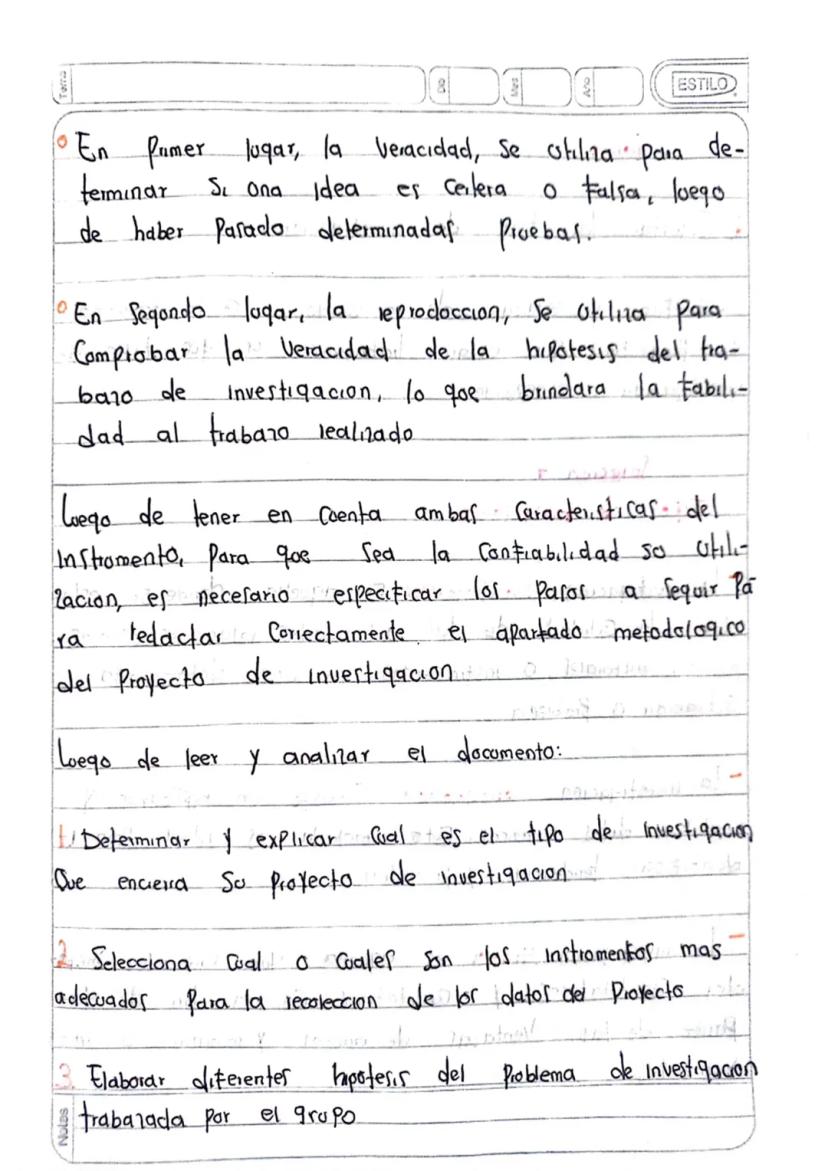 Tema
Día
Mes
Año
ESTILO
En Primer lugar, la Veracidad, Se Utiliza para de-
terminar Si una Idea es Certera o falsa, luego
de haber Pasado determinadas Pruebas.
En Segundo lugar, la reproduccion, Se Utiliza Para
Comprobar la Veracidad de la hipotesis del tra-
bajo de investigacion, lo que brindara la fabili-
dad al trabajo realizado
luego de tener en Cuenta ambas Caracteristicas del
Instrumento, Para que Sea la Confiabilidad su Utili-
zacion, es necesario especificar los pasos a Seguir Pa
ra redactar Correctamente el apartado metodologico
del Proyecto de investigacion
luego de leer y analizar el documento:
1. Determinar y explicar Cual es el tipo de investigacion
Que encierra Su Proyecto de investigacion
2. Selecciona Cual o Cuales Son los instrumentos mas
adecuados Para la recoleccion de los datos del Proyecto
3. Elaborar diferentes hipotesis del Problema de investigacion
trabajada por el grupo
Notas